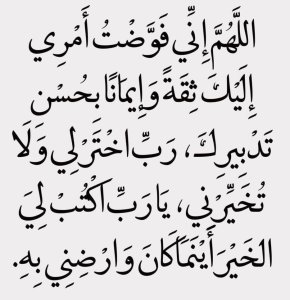 اللَّهُمَّ إِنِّي فَوَّضْتُ أَمْرِي
إِلَيْكَ ثِقَةً وَإِيمَانًا بِحُسْنِ
تَدْبِيرِكَ، رَبِّ اخْتَرْ لِي وَلَا
تُخَيِّرْنِي، يَا رَبِّ اكْتُبْ لِيَ
الخَيْرَ أَيْنَمَا كَانَ وَارْضِنِي بِهِ.